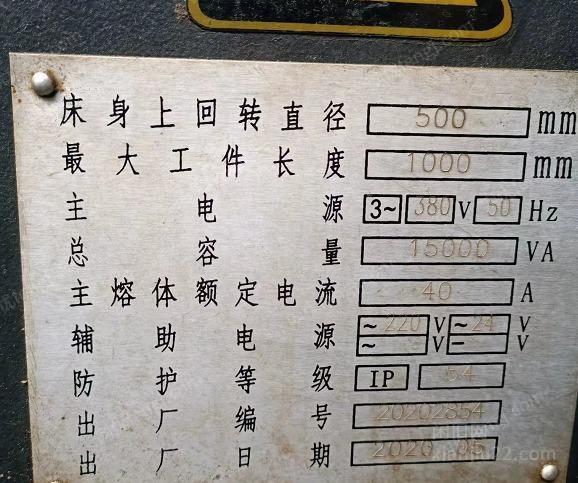 床身上回转直径 500 mm
最大工件长度 1000 mm
主电源 3~ 380 V 50 Hz
总容量 15000 VA
主熔体额定电流 40 A
辅助电源 ~ 220 V ~ 24 V
~ V - V
防护等级 IP 54
出厂编号 20202854
出厂日期 2020 05